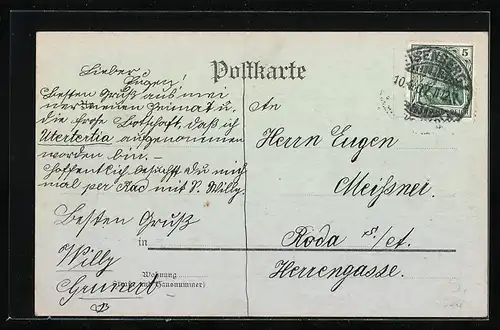 Postkarte
Lieber
Eugen!
Besten Gruß aus mei
ner neuen Heimat u.
die frohe Botschaft, daß ich
Untertertia aufgenommen
worden bin. –
Hoffentlich besuchst du mich
mal per Rad mit P. Willy.
Besten Gruß
Willy
Grunert
An
Herrn Eugen
Meißner
in
Roda S./A.
Herrengasse.
Wohnung
(Straße und Hausnummer)
5
EISENBERG